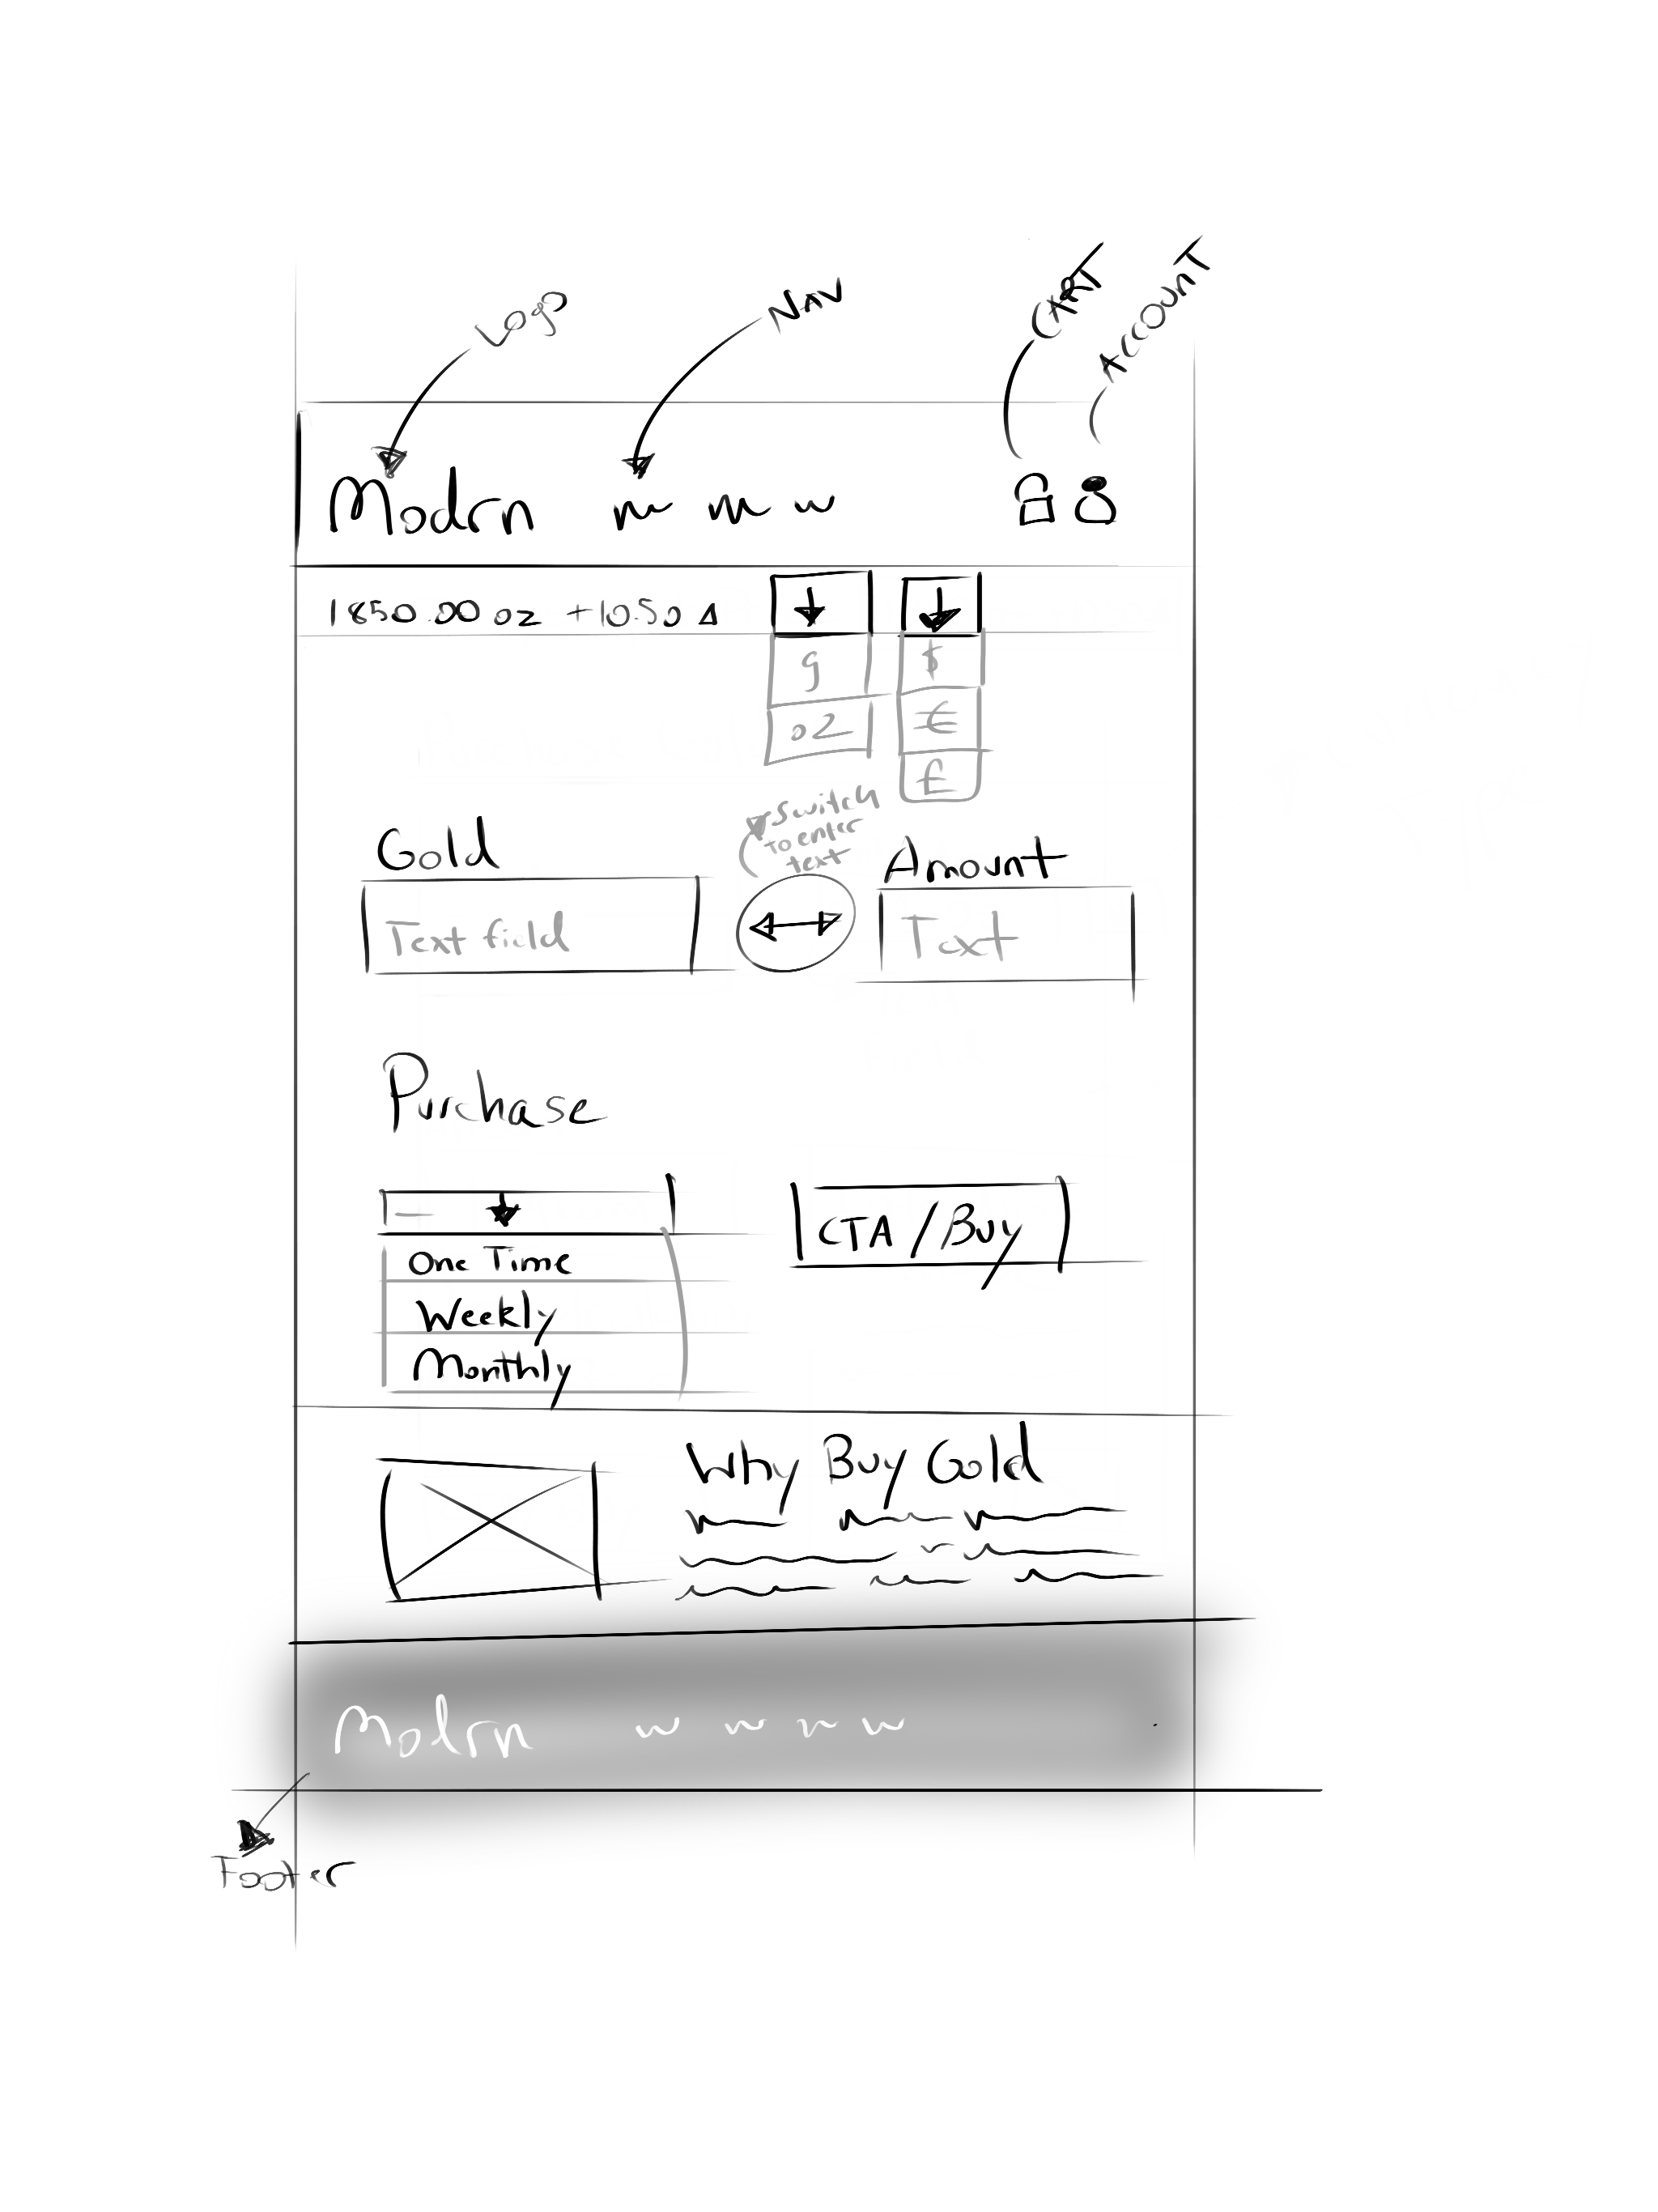 Logo
NAV
CART
ACCOUNT
Modrn
1850.00 oz +10.50 Δ
g
oz
$
€
£
Switch
to enter
text
Gold
Amount
Text field
Text
Purchase
CTA / Buy
One Time
Weekly
Monthly
Why Buy Gold
Modrn
Footer